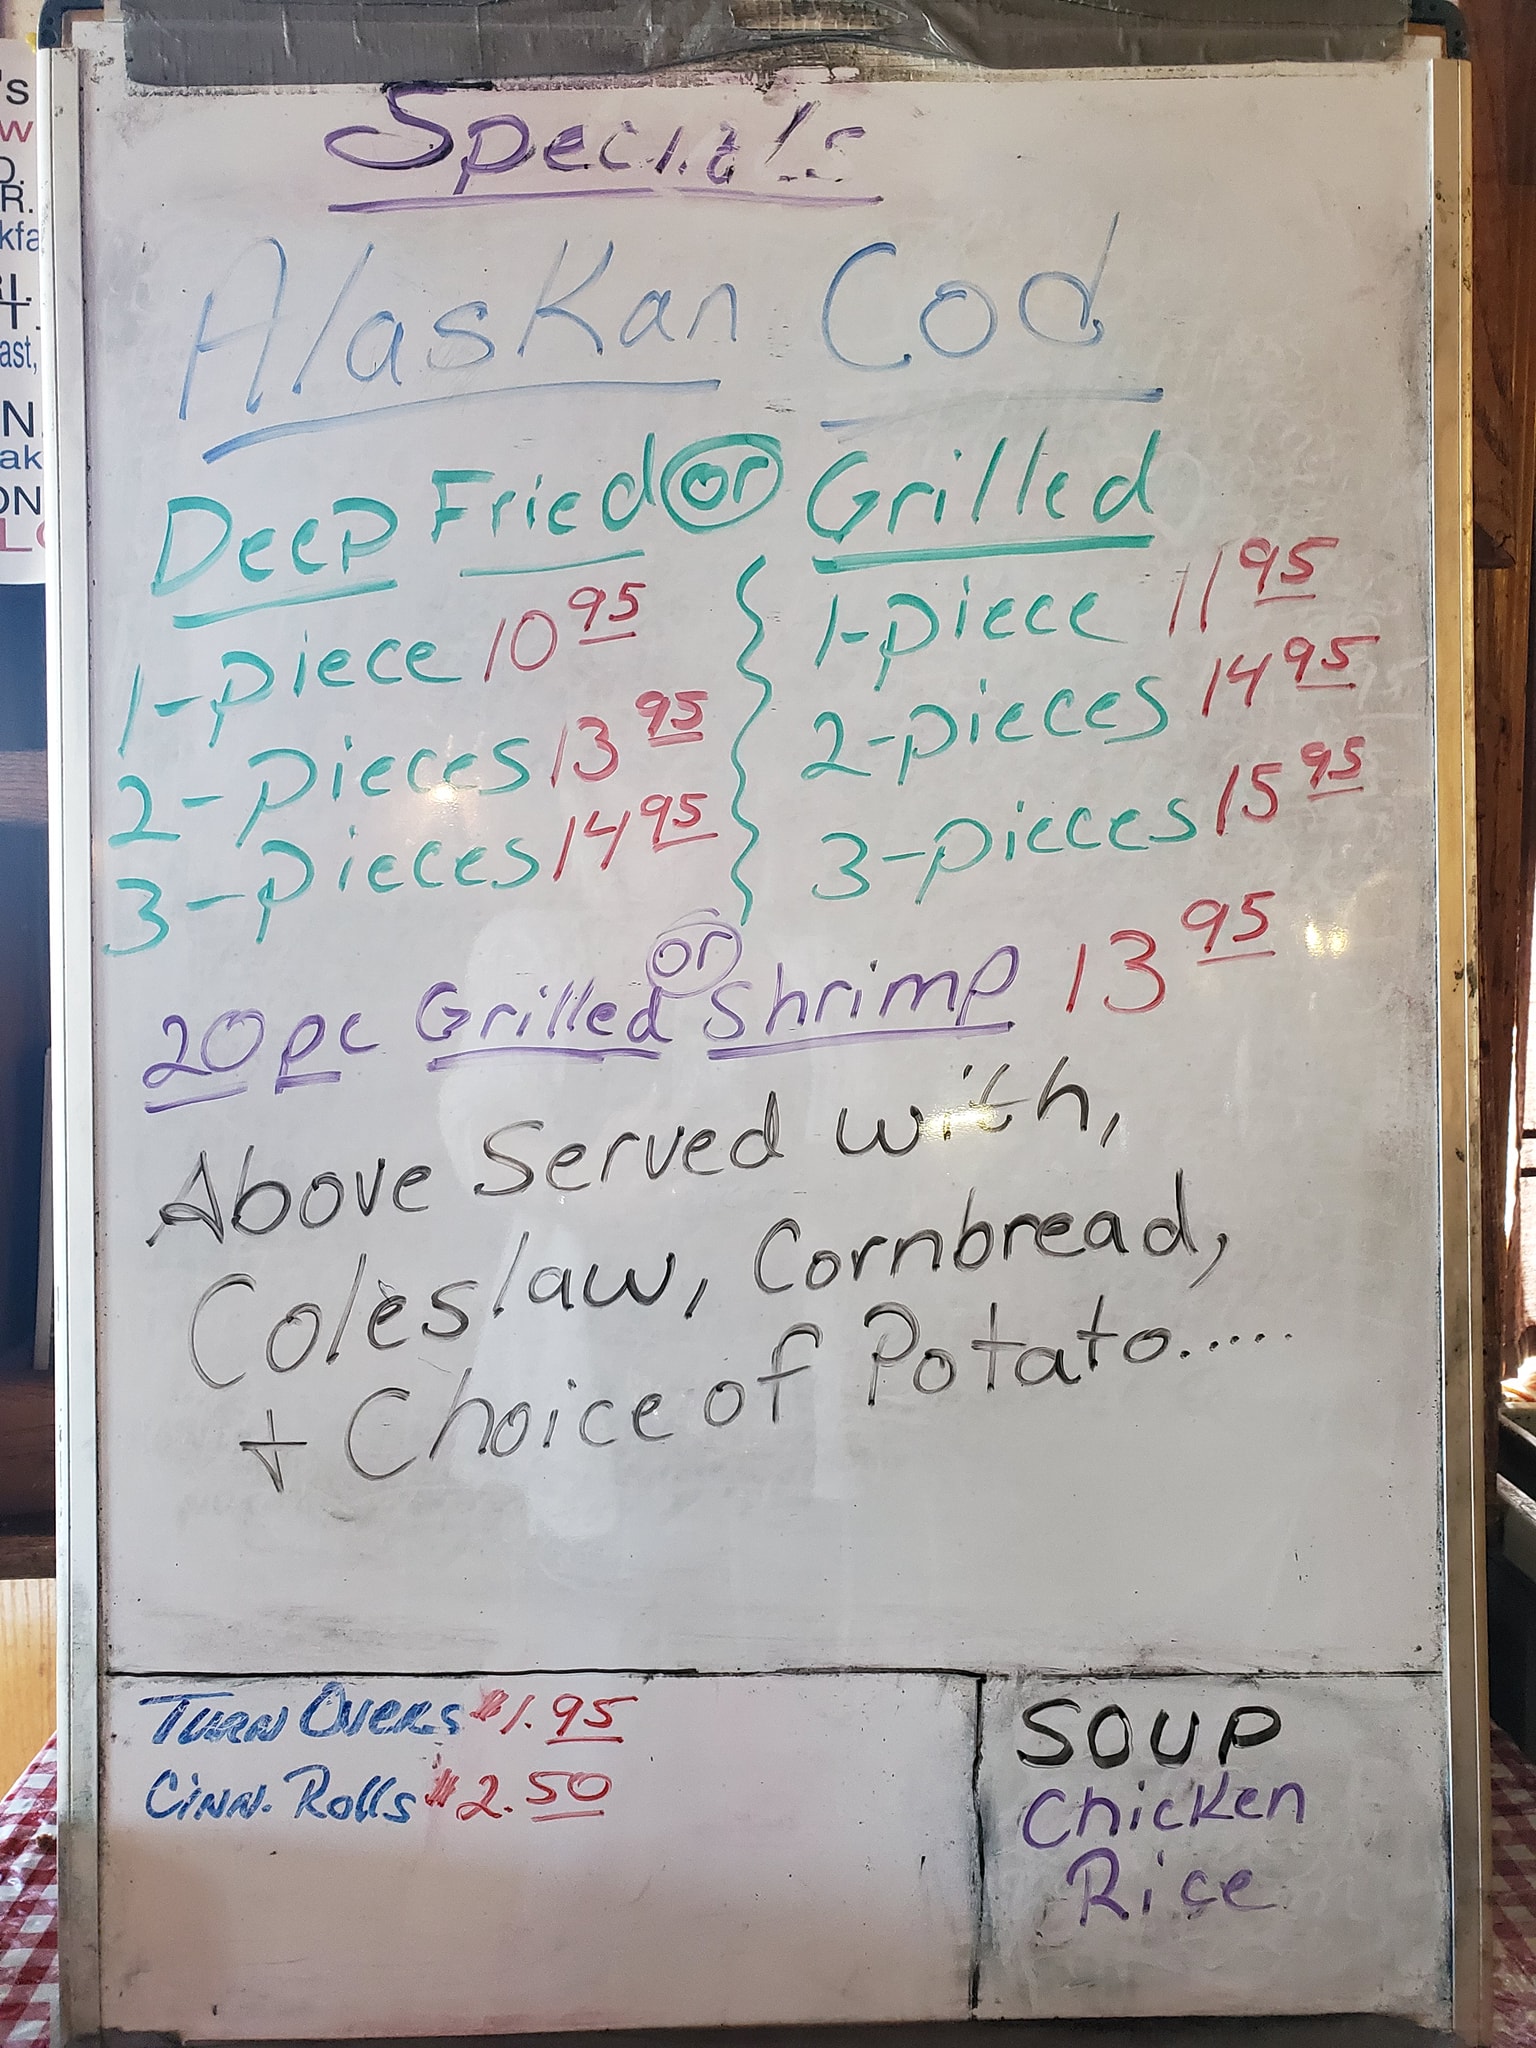 Specials
Alaskan Cod
Deep Fried or Grilled
1-piece 10 95 } 1-piece 11 95
2-pieces 13 95 } 2-pieces 14 95
3-pieces 14 95 } 3-pieces 15 95
20 pc Grilled or Shrimp 13 95
Above Served with,
Coleslaw, Cornbread,
+ Choice of Potato.....
Turn Overs $1.95
Cinn. Rolls $2.50
SOUP
Chicken
Rice